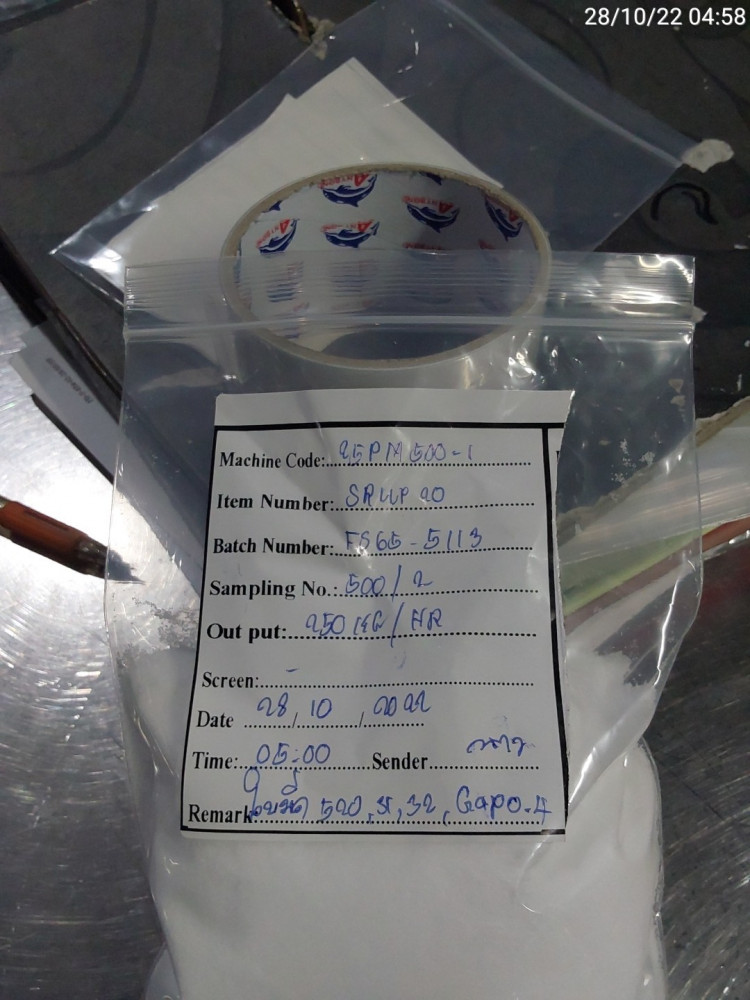 28/10/22 04:58
Machine Code: 25PM500-1
Item Number: SRWP 20
Batch Number: FS65-5113
Sampling No.: 500/2
Out put: 250 KG/HR
Screen: -
Date 28/10/2022
Time: 05:00 Sender
Remark: 520, 31, 32, Gapo.4